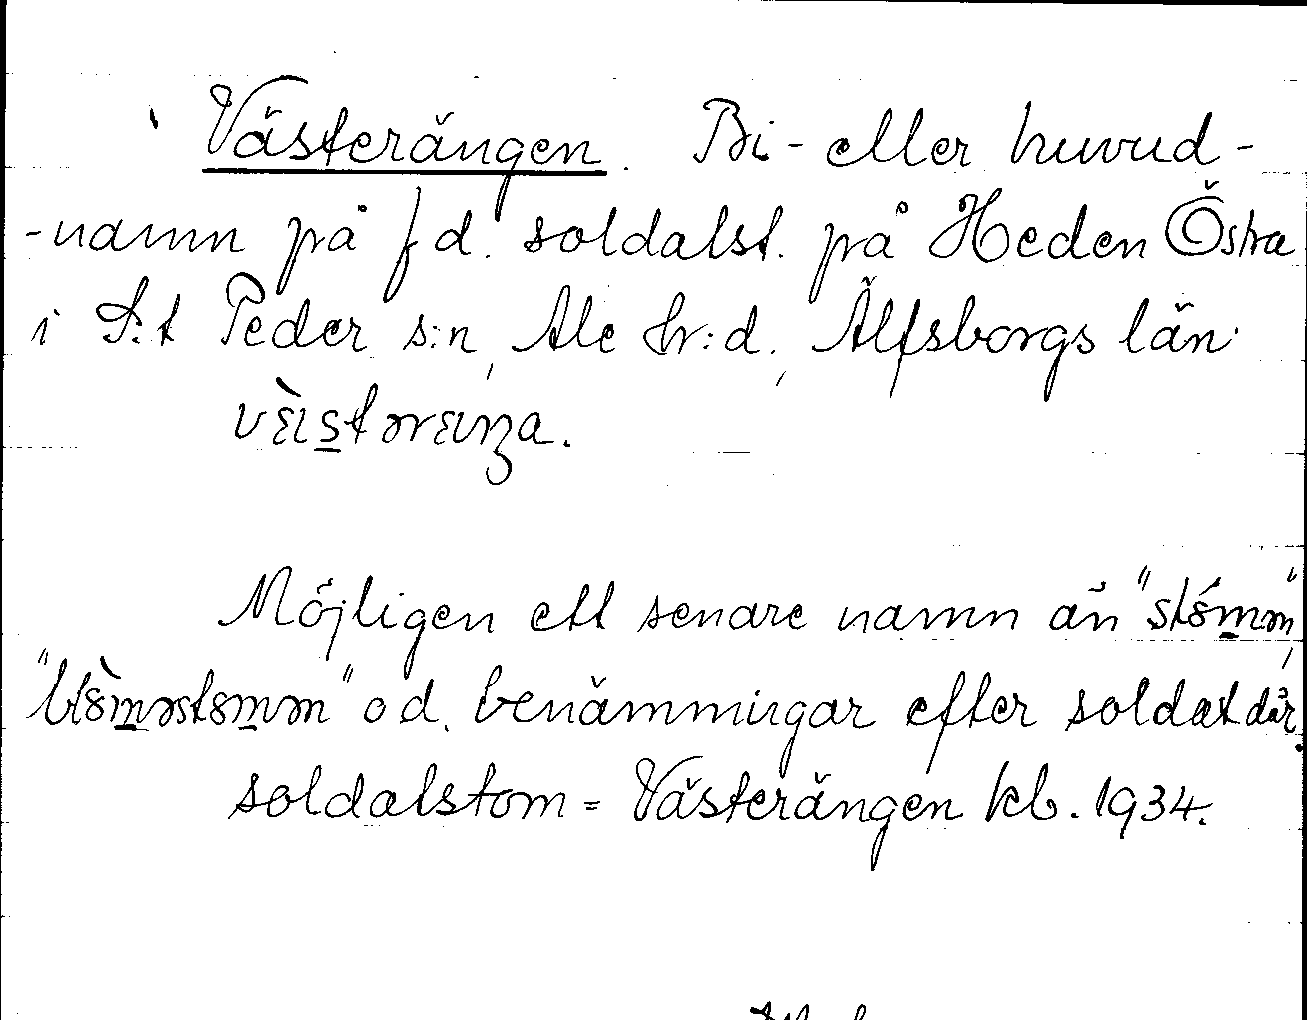 Västerängen. Bi- eller huvud-
-namn på f d. soldatst. på Heden Östra
i S:t Peder s:n, Ale hr:d, Älfsborgs län.
Möjligen ett senare namn än
o d. benämningar efter soldat där.
soldatstom = Västerängen kb. 1934.